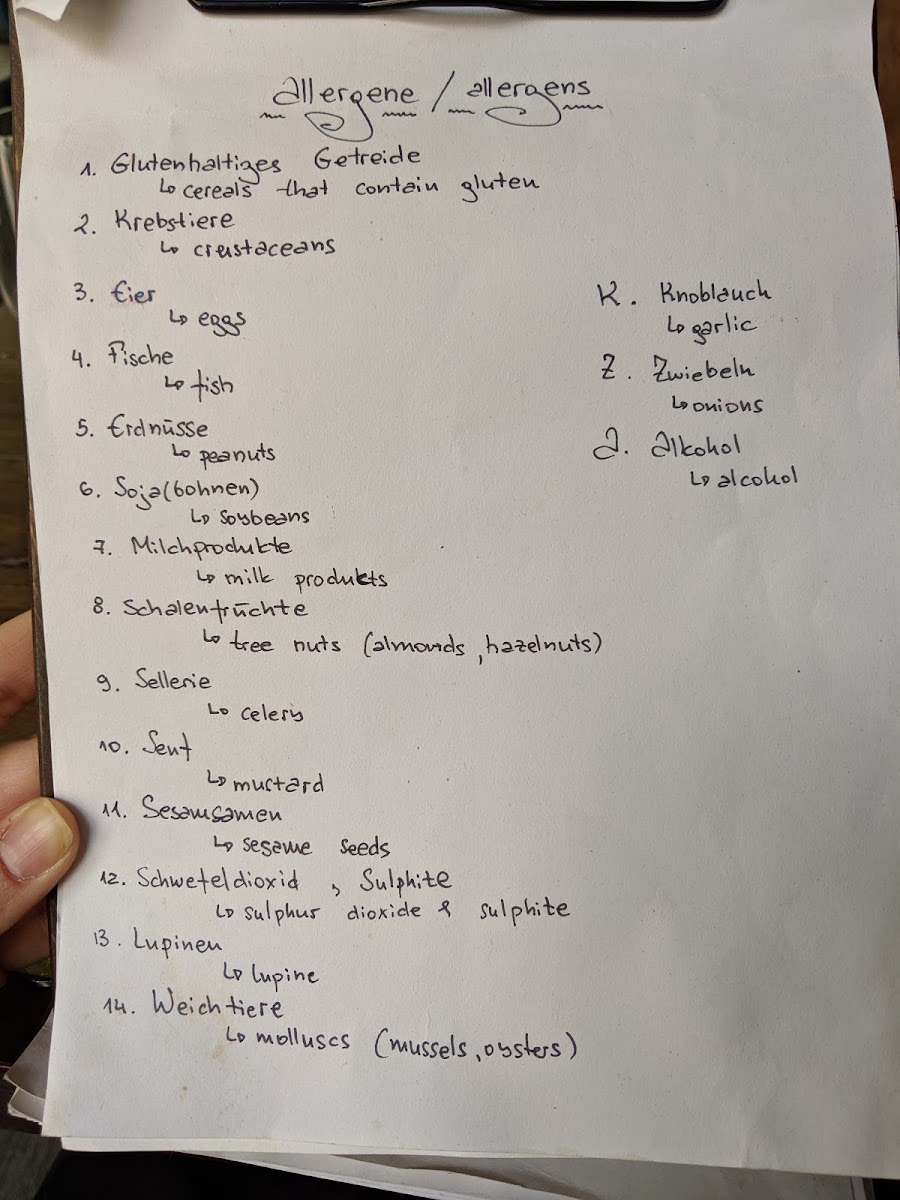 Allergene / allergens
1. Glutenhaltiges Getreide
↳ cereals that contain gluten
2. Krebstiere
↳ crustaceans
3. Eier
↳ eggs
4. Fische
↳ fish
5. Erdnüsse
↳ peanuts
6. Soja(bohnen)
↳ soybeans
7. Milchprodukte
↳ milk produkts
8. Schalenfrüchte
↳ tree nuts (almonds, hazelnuts)
9. Sellerie
↳ celery
10. Senf
↳ mustard
11. Sesamsamen
↳ sesame seeds
12. Schwefeldioxid, Sulphite
↳ sulphur dioxide & sulphite
13. Lupinen
↳ lupine
14. Weichtiere
↳ molluscs (mussels, oysters)
K. Knoblauch
↳ garlic
Z. Zwiebeln
↳ onions
A. Alkohol
↳ alcohol